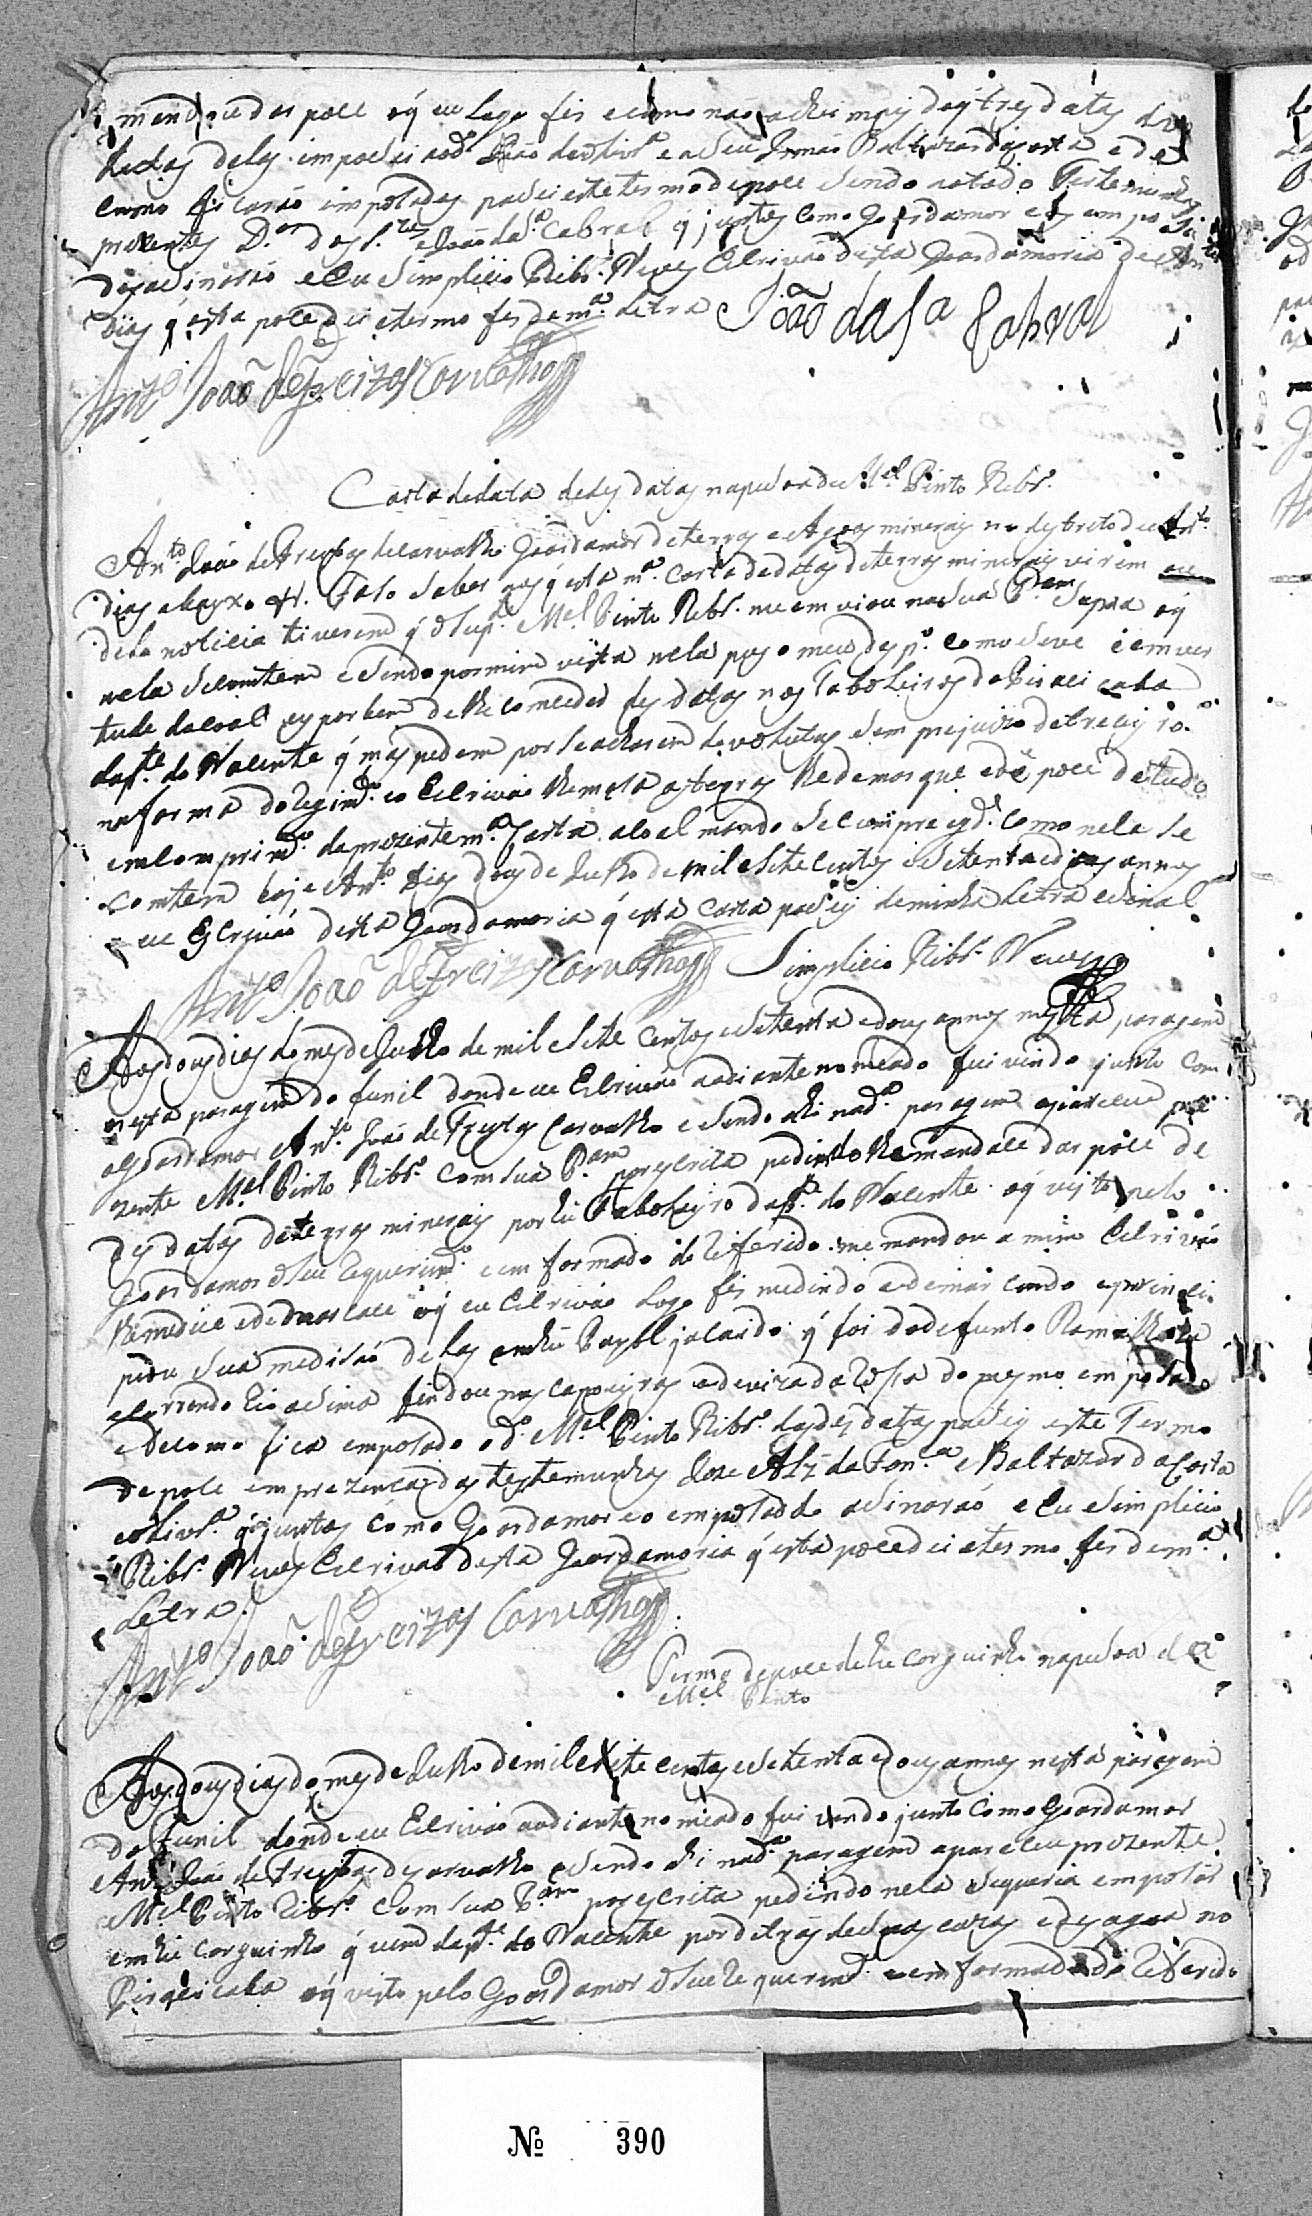 mandou dar poce oq̃ eu logo fis e como não achei mais das tres datas
delas imposei aod.º João deolivr.ª e aSeu Irmão Baltazar da Costa e de
como ficarão impoSados paSei este termo de poce sendo atodo Testemunhas
prezentes D.or e João daS.ª Cabral q̃ juntos como Goardamor e os
diso aSinarão e Eu Simplicio Ribr.º Neves Escrivão desta Goardamoria de An
Dias q̃ esta poce dei e termo fis de m.ª letra João da S.ª Cabral
Ant.º João de Freitas Carvalho
Carta dedata deseis datas napeSoa de M.el Pinto Ribr.º
An.to João de Freytas de Carvalho Goardamor de terras e Agoas minerais no destreto de An.to
Dias abayxo &. Faso Saber aos q̃ esta m.ª Carta de datas de terras minerais virem ou
dela noticia tiverem q̃ o Sup.e M.el Pinto Ribr.º me em viou na sua P.am Supra oq̃
nela Se comtem e Sendo por mim vista nela pus o meu desp.º como Seve e em ver
tude do coal ey por bem de lhe comceder seis datas nos Taboleiros do Piracicaba
da p.te do Nacente q̃ mas pedem por Se acharem devolutas Sem prejuizo deterceiro
na forma do Regim.to e o Escrivão lhe meSa as terras lhe demarque e dê poce de tudo
em comprim.to da prezente m.ª Carta a coal mando Se cumpra e g.de como nela Se
comtem hoje An.to Dias dous de Julho de mil e Sete centos e Setenta e dous annos
eu Escrivão desta Goardamoria q̃ esta carta paSei de minha letra e Sinal
Ant.º João de Freitas Carvalho Simplicio Ribr.º Neves
Aos dous dias do mes de Julho de mil e Sete centos e Setenta e dous annos nesta paragem
nesta paragem do funil donde eu Escrivão aodiante nomeado fui vindo junto com
o Goardamor An.to João de Freytas Carvalho e Sendo ahi na d.ª paragem apareceu pre
zente M.el Pinto Ribr.º com Sua P.am por escrita pedindo lhe mandace dar poce de
seis datas de terras minerais por hũ Taboleyro da p.te do Nacente oq̃ visto pelo
Goardamor o Seu requerim.to e em formado do Referido me mandou a mim Escrivão
lhe medice e demarcace oq̃ eu Escrivão logo fis medindo e demarcando e princi
piou Sua medisão delas em hũ Payol jacaido q̃ foi do defunto
e correndo Rio aSima findou nas capoeyras e deviza da roSa do mesmo empoSado
e de como fica empoSado o d.º M.el Pinto Ribr.º das seis datas paSei este Termo
de poce em prezença das testemunhas Joze Alz̃ da Fon.ca e Baltazar da Costa
eolivr.ª q̃ juntos como Goardamor e o empoSado aSinarão e Eu Simplicio
Ribr.º Neves Escrivão desta Goardamoria q̃ esta poce dei e termo fis de m.ª
letra.
Ant.º João de Freitas Carvalho
Termo de poce de hũ corguinho napeSoa de
M.el Pinto
Aos dous dias do mes de Julho de mil e Sete centos e Setenta e dous annos nesta paragem
do Funil donde eu Escrivão aodiante nomeado fui vindo junto como Goardamor
An.to João de Freytas de Carvalho e Sendo ahi na d.ª paragem apareceu prezente
M.el Pinto Ribr.º com Sua P.am por escrita pedindo nela Sequeria empoSar
em hũ corguinho q̃ vem da p.te do Nacente por detrás de Suas cazas e desagoa no
Piracicaba oq̃ visto pelo Goardamor o Seu requerim.to e em formado do Referido
Nº 390